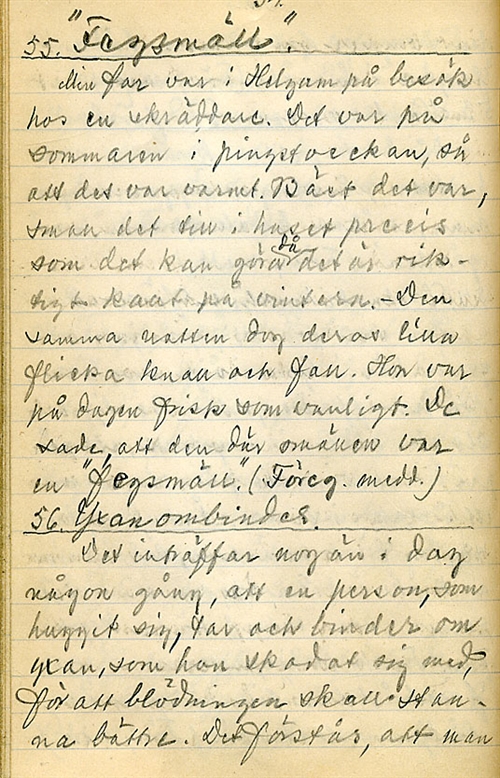 55. "Fegsmäll".
Mor far var i Helgum på besök
hos en skräddare. Det var på
sommaren i pingstveckan, så
att det var varmt. Bäst det var,
small det till i huset precis
som det kan göra då det är rik-
tigt kallt på vintern. – Den
samma natten dog deras lilla
flicka knall och fall. Hon var
på dagen frisk som vanligt. De
sade, att den där smällen var
en "fegsmäll". (Föreg. medd.)
56. Yxan ombindes.
Det inträffar nog än i dag
någon gång, att en person, som
huggit sig, tar och binder om
yxan, som han skadat sig med,
för att blödningen skall stan-
na bättre. Det förstås, att man